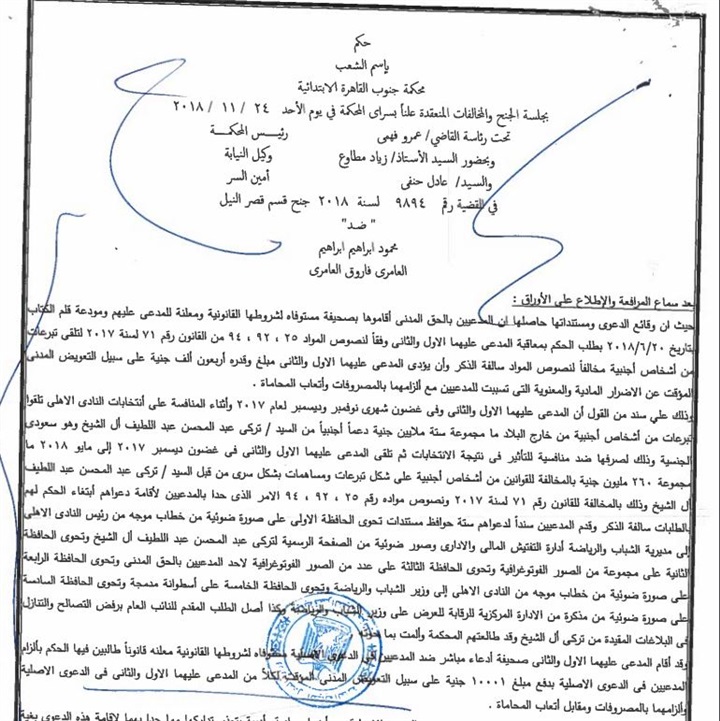 حكم
بإسم الشعب
محكمة جنوب القاهرة الابتدائية
بجلسة الجنح والمخالفات المنعقدة علناً بسراى المحكمة في يوم الأحد ٢٤ / ١١ / ٢٠١٨
تحت رئاسة القاضي/ عمرو فهمى رئيس المحكمة
وبحضور السيد الأستاذ/ زياد مطاوع وكيل النيابة
والسيد/ عادل حنفى أمين السر
في القضية رقم ٩٨٩٤ لسنة ٢٠١٨ جنح قسم قصر النيل
" ضد "
محمود ابراهيم ابراهيم
العامرى فاروق العامرى
بعد سماع المرافعة والإطلاع على الأوراق :
حيث ان وقائع الدعوى ومستنداتها حاصلها ان المدعيين بالحق المدنى أقاموها بصحيفة مستوفاه لشروطها القانونية ومعلنة للمدعى عليهم ومودعة قلم الكتاب
بتاريخ ٢٠١٨/٦/٢٠ بطلب الحكم بمعاقبة المدعى عليهما الاول والثانى وفقاً لنصوص المواد ٢٥ ، ٩٢ ، ٩٤ من القانون رقم ٧١ لسنة ٢٠١٧ لتلقى تبرعات
من أشخاص أجنبية مخالفاً لنصوص المواد سالفة الذكر وأن يؤدى المدعى عليهما الاول والثانى مبلغ وقدره أربعون ألف جنية على سبيل التعويض المدنى
المؤقت عن الاضرار المادية والمعنوية التى تسببت للمدعيين مع ألزامهما بالمصروفات وأتعاب المحاماة .
وذلك علي سند من القول أن المدعى عليهما الاول والثانى وفى غضون شهرى نوفمبر وديسمبر لعام ٢٠١٧ وأثناء المنافسة على أنتخابات النادى الاهلى تلقوا
تبرعات من أشخاص أجنبية من خارج البلاد ما مجموعة ستة ملايين جنية دعماً أجنبياً من السيد / تركى عبد المحسن عبد اللطيف أل الشيخ وهو سعودى
الجنسية وذلك لصرفها ضد منافسية للتأثير فى نتيجة الانتخابات ثم تلقى المدعى عليهما الاول والثانى فى غضون ديسمبر ٢٠١٧ إلى مايو ٢٠١٨ ما
مجموعة ٢٦٠ مليون جنية بالمخالفة للقوانين من أشخاص أجنبية على شكل تبرعات ومساهمات بشكل سرى من قبل السيد / تركى عبد المحسن عبد اللطيف
أل الشيخ وذلك بالمخالفة للقانون رقم ٧١ لسنة ٢٠١٧ ونصوص مواده رقم ٢٥ ، ٩٢ ، ٩٤ الامر الذى حدا بالمدعيين لأقامة دعواهم أبتغاء الحكم لهم
بالطلبات سالفة الذكر وقدم المدعيين سنداً لدعواهم ستة حوافظ مستندات تحوى الحافظة الاولى على صورة ضوئية من خطاب موجه من رئيس النادى الاهلى
إلى مديرية الشباب والرياضة أدارة التفتيش المالى والادارى وصور ضوئية من الصفحة الرسمية لتركى عبد المحسن عبد اللطيف أل الشيخ وتحوى الحافظة
الثانية على مجموعة من الصور الفوتوغرافية وتحوى الحافظة الثالثة على عدد من الصور الفوتوغرافية لاحد المدعيين بالحق المدنى وتحوى الحافظة الرابعة
على صورة ضوئية من خطاب موجه من النادى الاهلى إلى وزير الشباب والرياضة وتحوى الحافظة الخامسة على أسطوانة مدمجة وتحوى الحافظة السادسة
على صورة ضوئية من مذكرة من الادارة المركزية للرقابة للعرض على وزير الشباب والرياضة وكذا أصل الطلب المقدم للنائب العام برفض التصالح والتنازل
فى البلاغات المقيدة من تركى أل الشيخ وقد طالعتهم المحكمة وألمت بما حوته
وقد أقام المدعى عليهما الاول والثانى صحيفة أدعاء مباشر ضد المدعيين فى الدعوى الاصلية مستوفاه لشروطها القانونية معلنه قانوناً طالبين فيها الحكم بألزام
المدعيين فى الدعوى الاصلية بدفع مبلغ ١٠٠٠١ جنية على سبيل التعويض المدنى المؤقت لكلاً من المدعى عليهما الاول والثانى فى الدعوى الاصلية
وألزامهما بالمصروفات ومقابل أتعاب المحاماة .